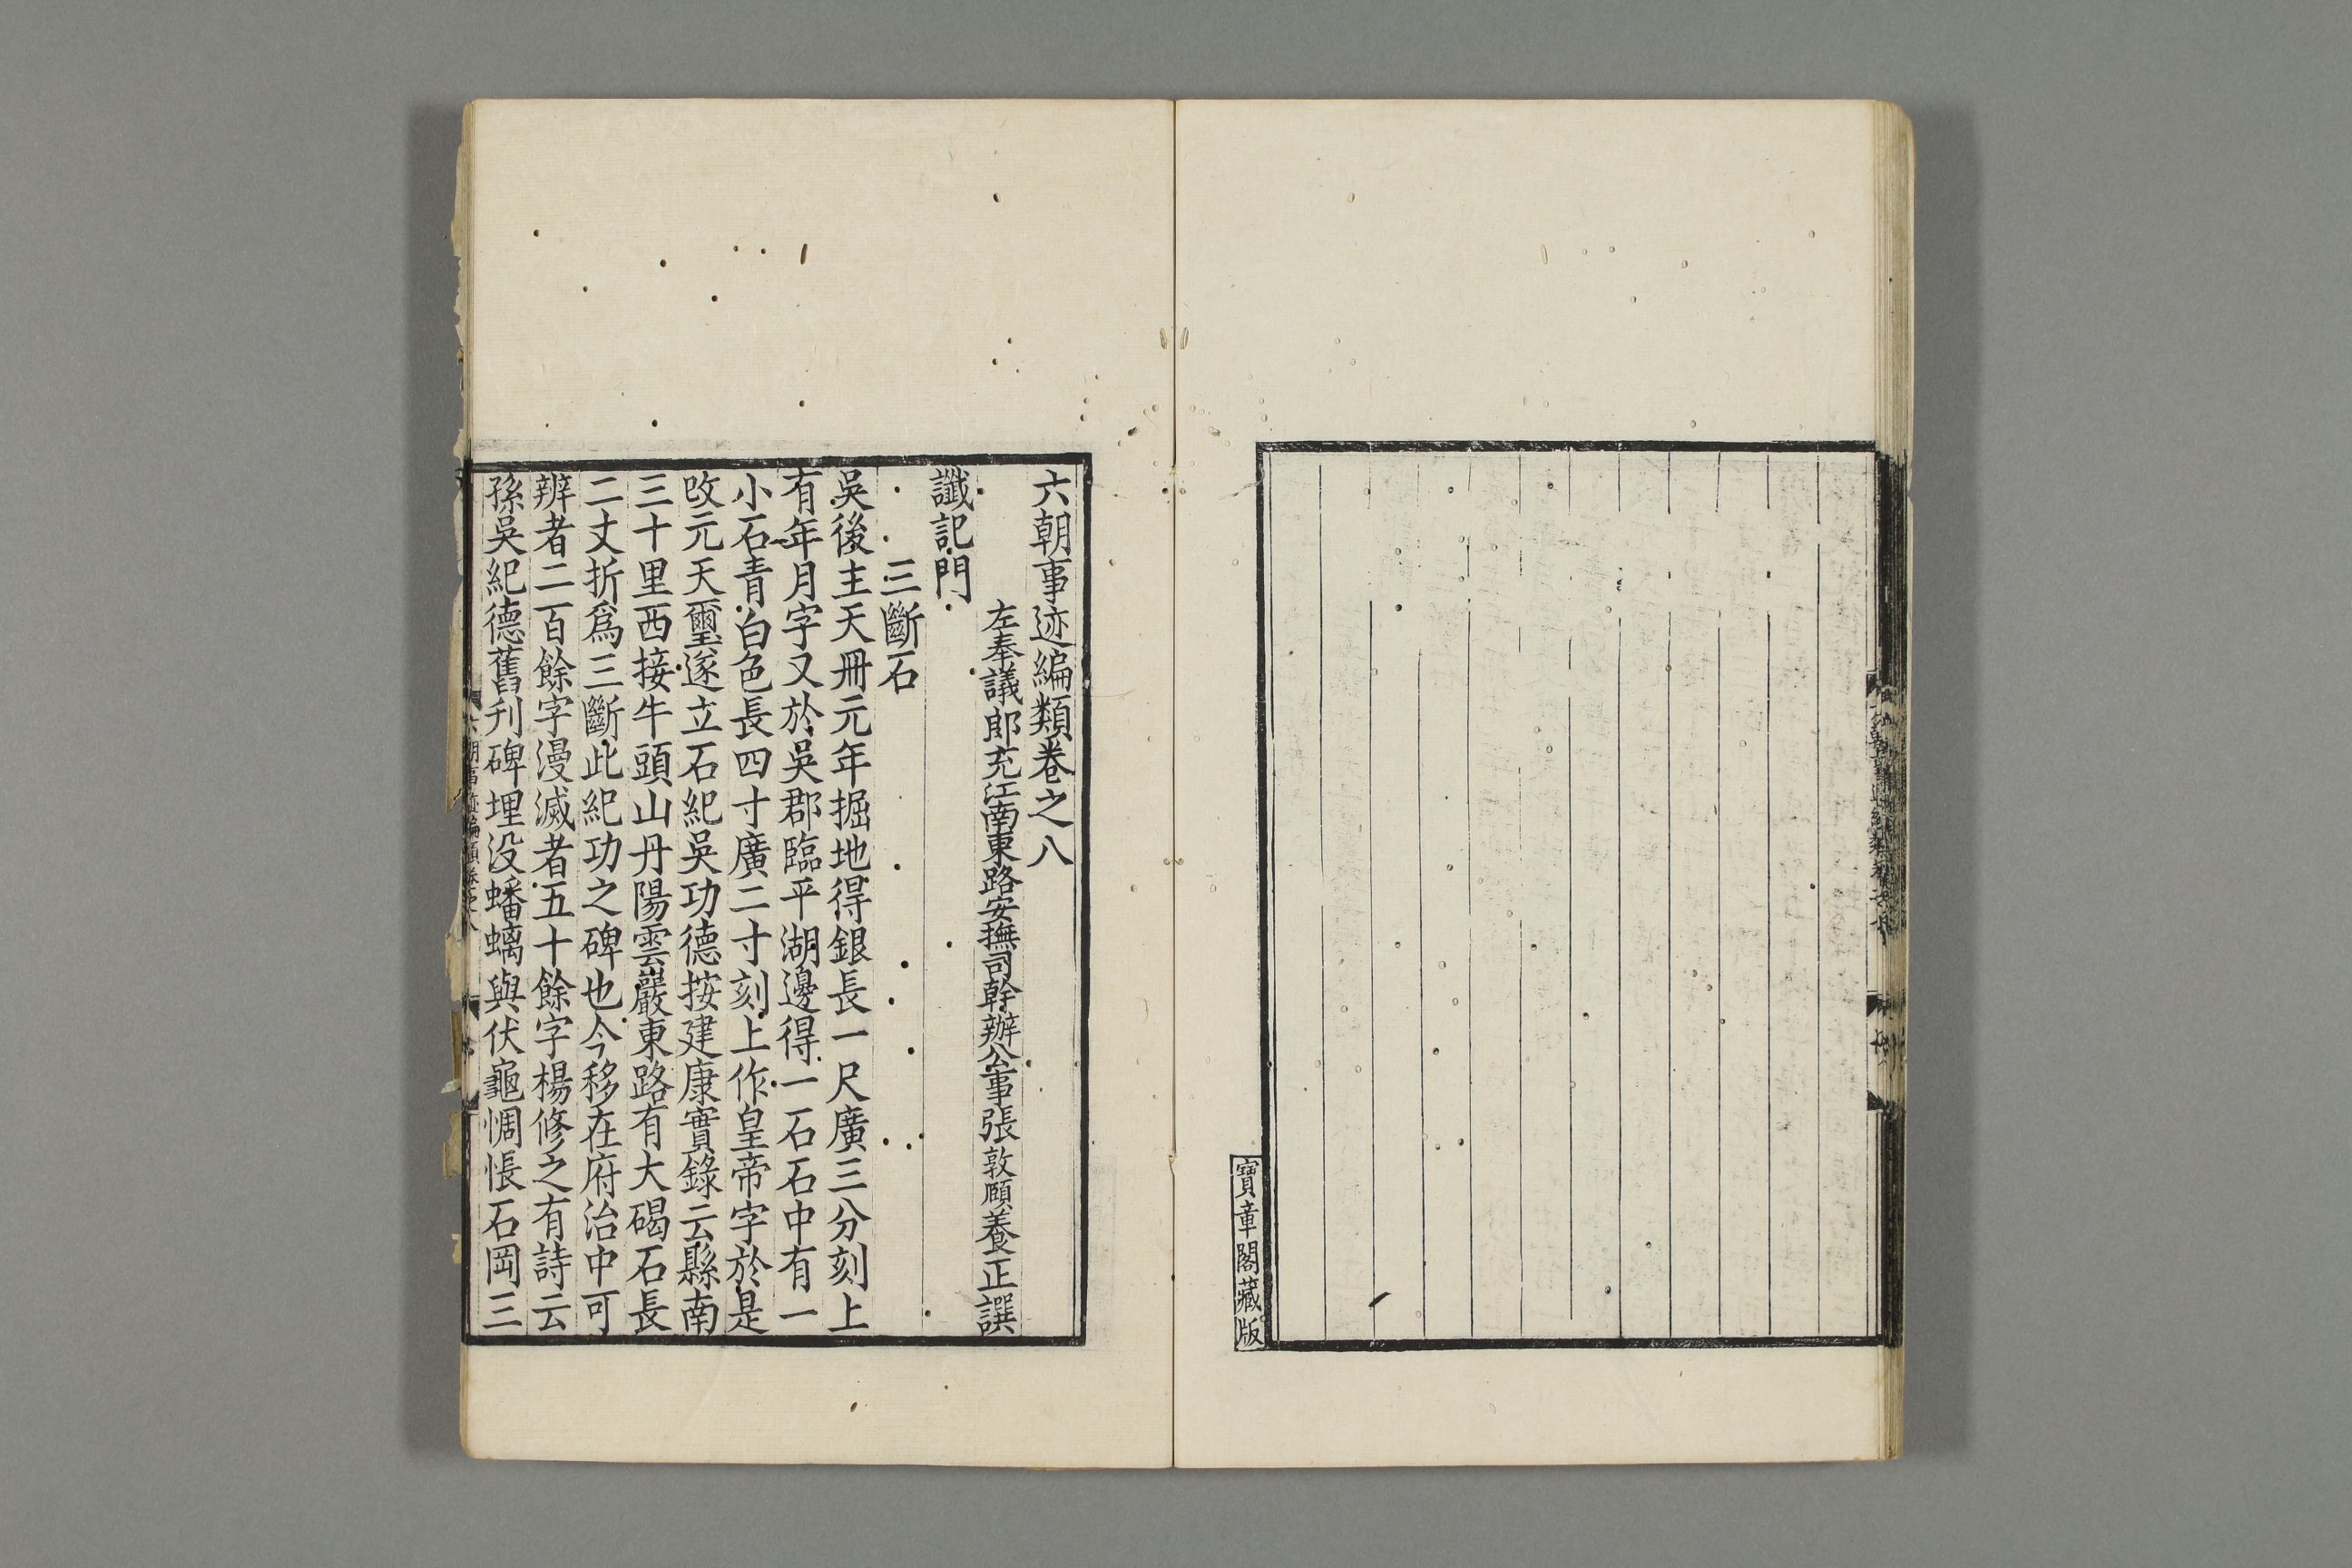 寶章閣藏版
六朝事迹編類卷之八
左奉議郎充江南東路安撫司幹辦公事張敦頤養正譔
讖記門
三斷石
吳後主天冊元年掘地得銀長一尺廣三分刻上
有年月字又於吳郡臨平湖邊得一石石中有一
小石青白色長四寸廣二寸刻上作皇帝字於是
改元天璽遂立石紀吳功德按建康實錄云縣南
三十里西接牛頭山丹陽雲巖東路有大碣石長
二丈折爲三斷此紀功之碑也今移在府治中可
辨者二百餘字漫滅者五十餘字楊修之有詩云
孫吳紀德舊刋碑埋没蟠螭與伏龜惆悵石岡三